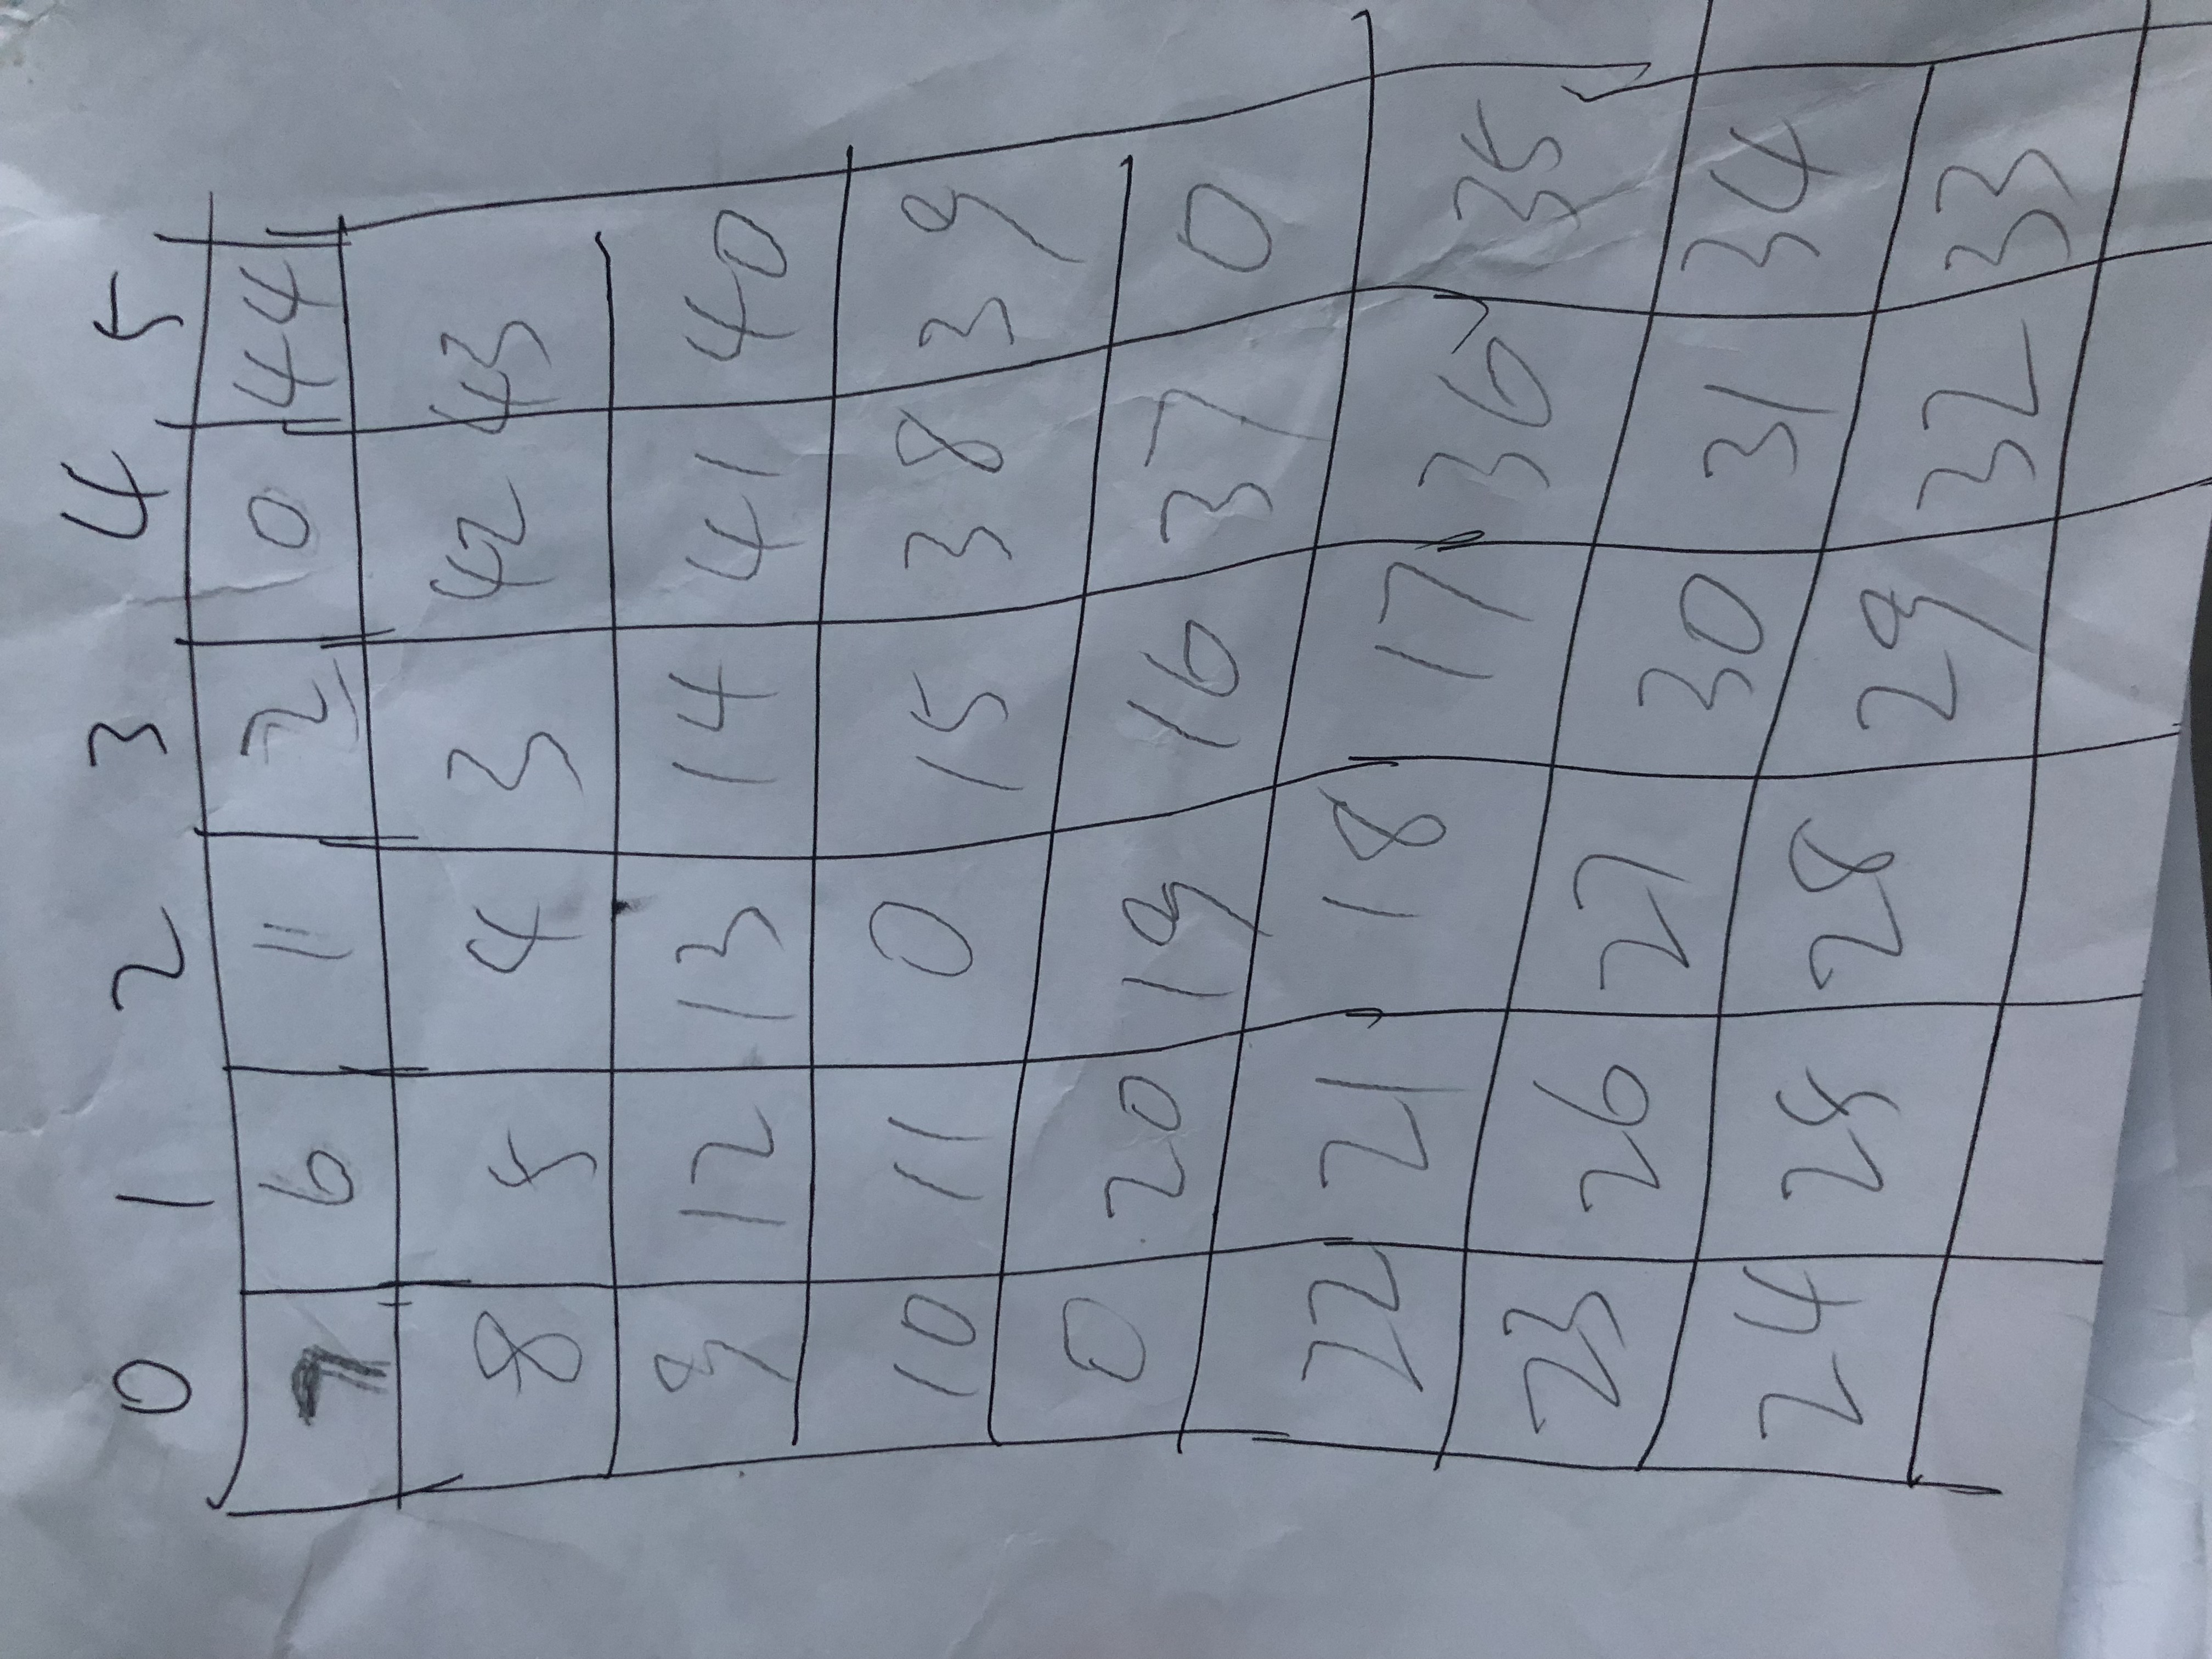 0 1 2 3 4 5
7 6 1 2 0 44
8 5 4 3 42 43
9 12 13 14 41 40
10 11 0 15 38 39
0 20 19 16 37 0
22 21 18 17 36 35
23 26 27 30 31 34
24 25 28 29 32 33